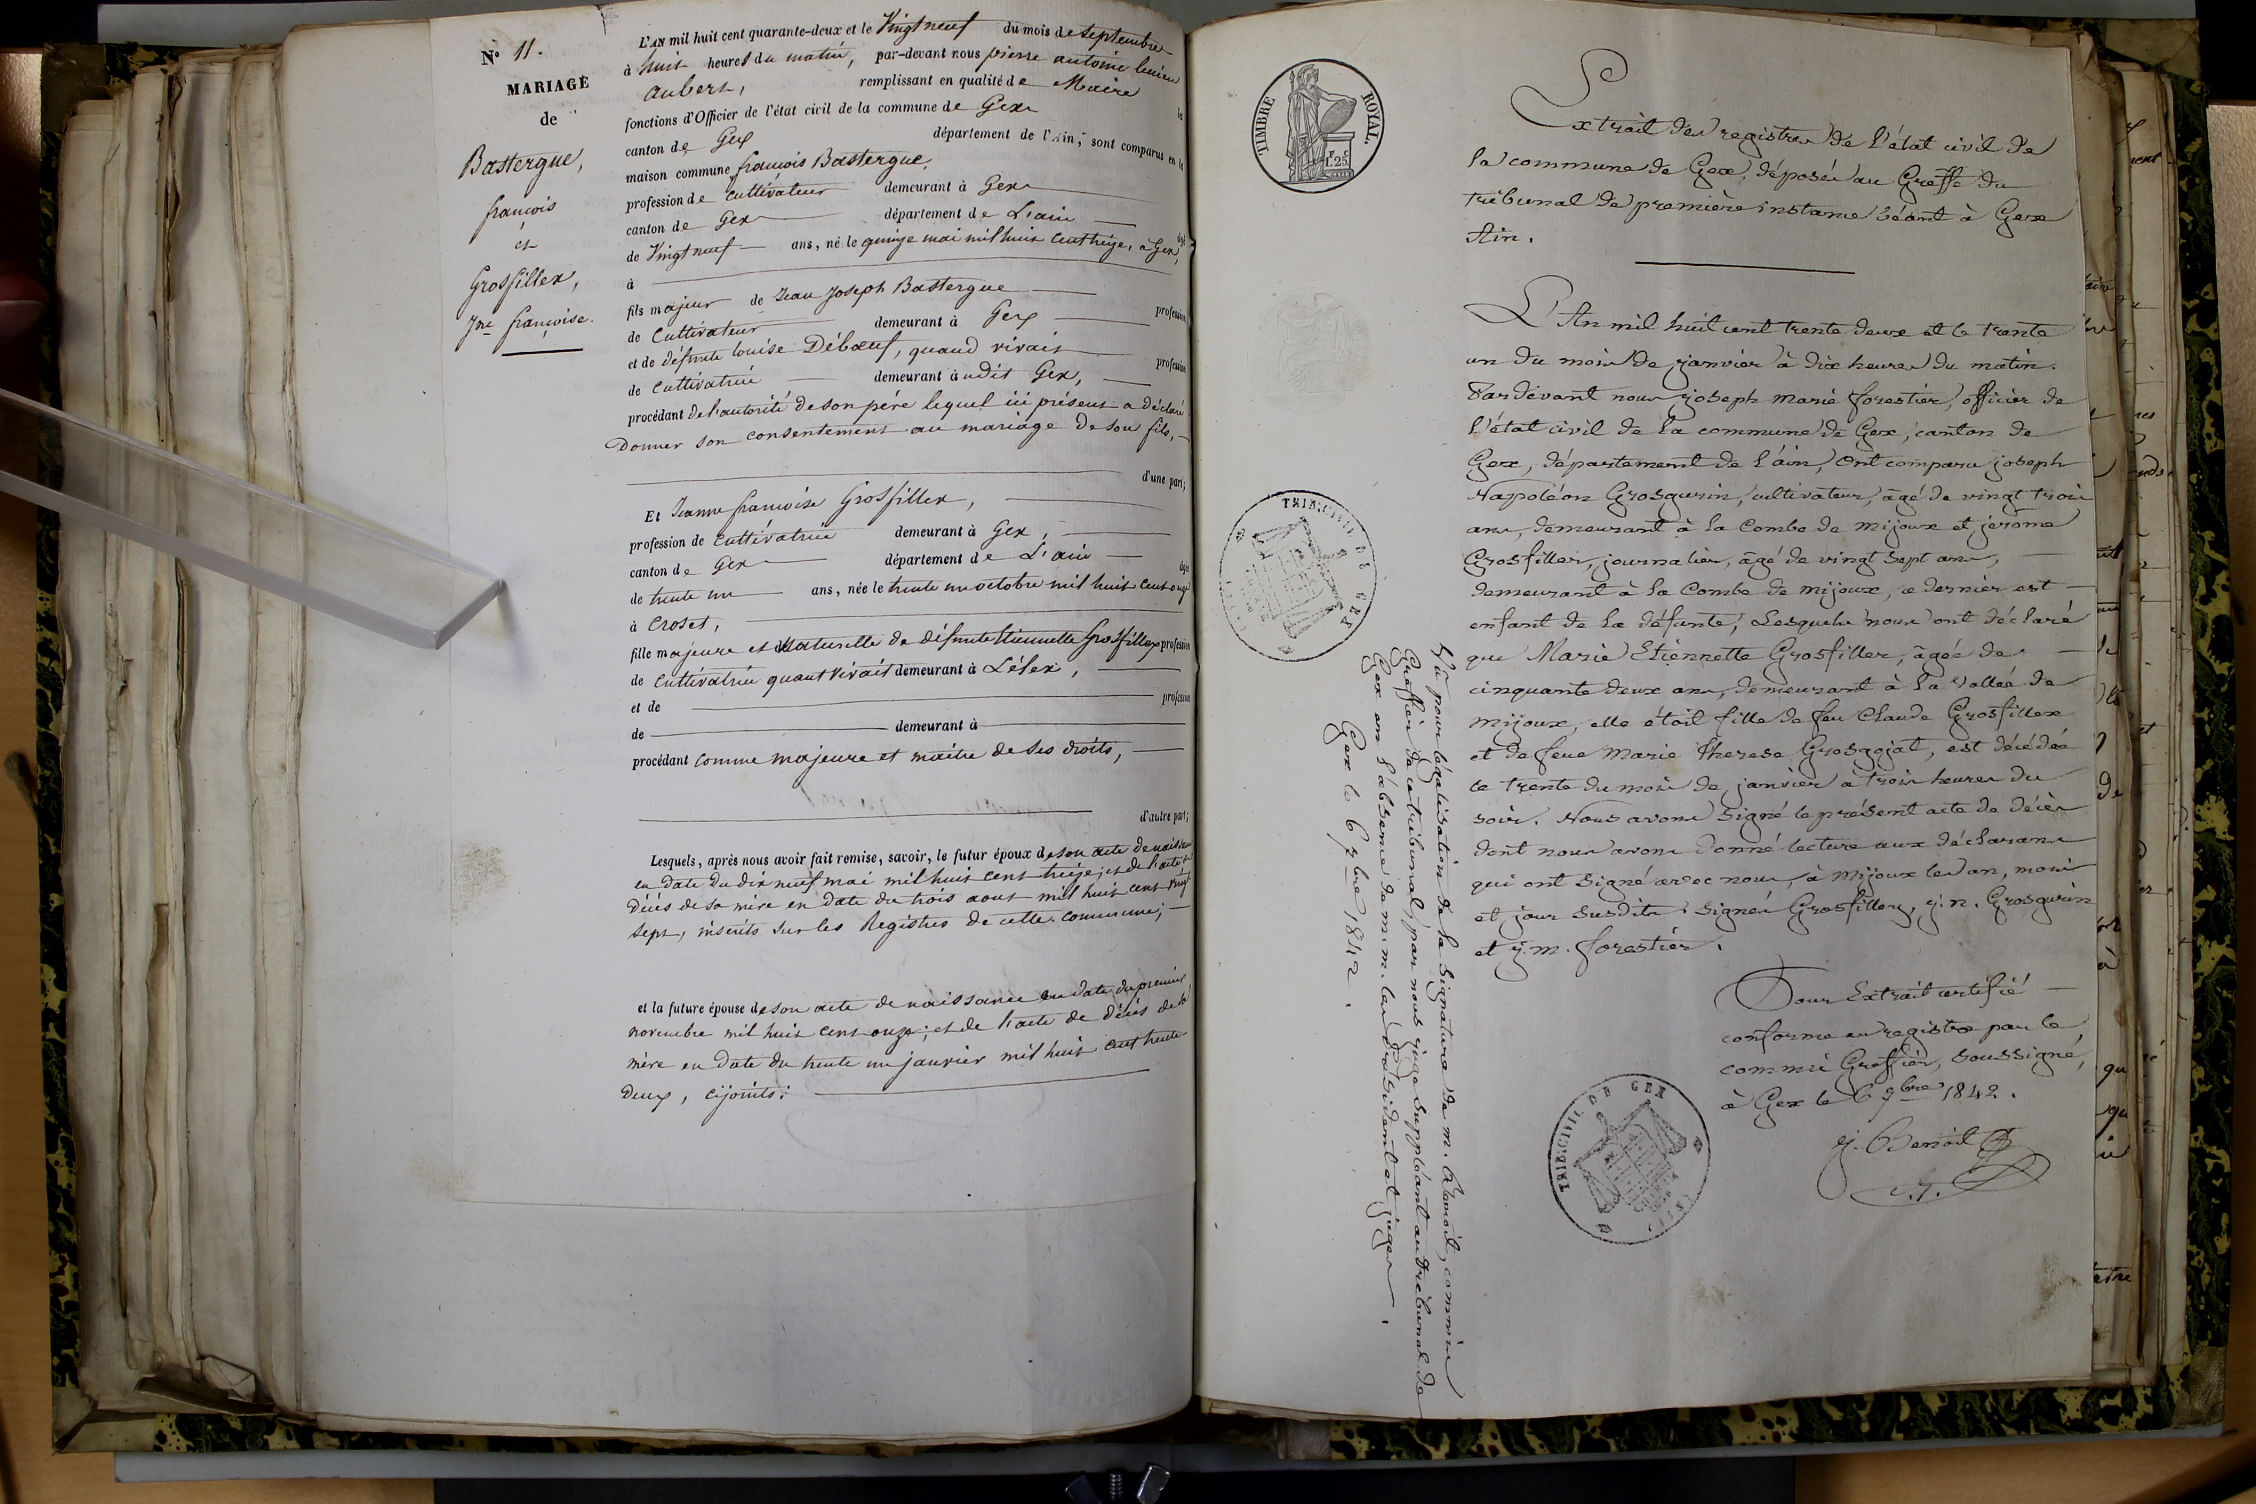 N° 11.
MARIAGE
de
Bastergue,
françois
et
Grosfillex,
Jne françoise.
L'AN mil huit cent quarante-deux et le Vingt neuf du mois de septembre
à huit heures du matin, par-devant nous pierre antoine
aubert, remplissant en qualité de Maire
fonctions d'Officier de l'état civil de la commune de Gex
canton de Gex département de l'Ain, sont comparus en la
maison commune françois Bastergue,
profession de cultivateur demeurant à Gex
canton de Gex département de L'ain
de Vingt neuf ans, né le quinze mai mil huit cent treize, à Gex,
à
fils majeur de Jean Joseph Bastergue profession
de Cultivateur demeurant à Gex
et de défunte louise Débœuf, quand vivait profession
de cultivatrice demeurant à udit Gex,
procédant de l'autorité de son père lequel ici présent a déclaré
Donner son consentement au mariage de son fils,
d'une part;
Et Jeanne françoise Grosfillex,
profession de cultivatrice demeurant à Gex,
canton de Gex département de L'ain
de trente un ans, née le trente un octobre mil huit cent onze
à Croset,
fille majeure et Naturelle de défunte Etiennette Grosfillex profession
de Cultivatrice quant vivait demeurant à Lélex,
et de profession
de demeurant à
procédant comme majeure et maitre de ses droits,
d'autre part;
Lesquels, après nous avoir fait remise, savoir, le futur époux de son acte de naissance
en date du dix neuf mai mil huit cent treize; et de l'acte de
décès de sa mère en date du trois aout mil huit cent vingt
sept, insérés sur les Registres de cette commune;
et la future épouse de son acte de naissance en date du premier
novembre mil huit cent onze; et de l'acte de décès de sa
mère en date du trente un janvier mil huit cent trente
deux, cijoints:
TIMBRE ROYAL.
1.25
Extrait des registres de L'état civil de
la commune de Gex, déposés au Greffe du
tribunal de première instance séant à Gex
Ain.
L'An mil huit cent trente deux et le trente
un du mois de janvier à dix heures du matin.
Pardevant nous joseph marie forestier, officier de
l'état civil de la commune de Gex, canton de
Gex, département de l'ain, Ont comparu joseph
Nappoléon Grosgurin, cultivateur, âgé de vingt trois
ans, demeurant à la Combe de mijoux et jerôme
Grosfiller, journalier, âgé de vingt sept ans,
demeurant à la Combe de mijoux, ce dernier est
enfant de la défunte; Lesquels nous ont déclaré
que Marie Etiennette Grosfiller, âgée de
cinquante deux ans, demeurant à la Vallée de
mijoux, elle était fille de feu Claude Grosfillex
et de feue Marie Therese Grosgojat, est décédée
le trente du mois de janvier à trois heures du
soir. Nous avons signé le présent acte de décès
dont nous avons donné lecture aux déclarans
qui ont signé avec nous, à Mijoux les an, mois
et jour susdits. Signés Grosfillex, j. n. Grosgurin
et j. m. forestier.
Pour Extrait certifié
conforme au registre par le
commis Greffier, soussigné,
à Gex le 6 7bre 1842.
j. Benoit
TRIB. CIVIL DE GEX
TRIB. CIVIL DE GEX
Vu pour légalisation de la signature de m. Benoit, commis
Greffier de ce tribunal, par nous juge Suppléant au tribunal de
Gex en l'absence de m. m. les Président et juges.
Gex le 6 7bre 1842.